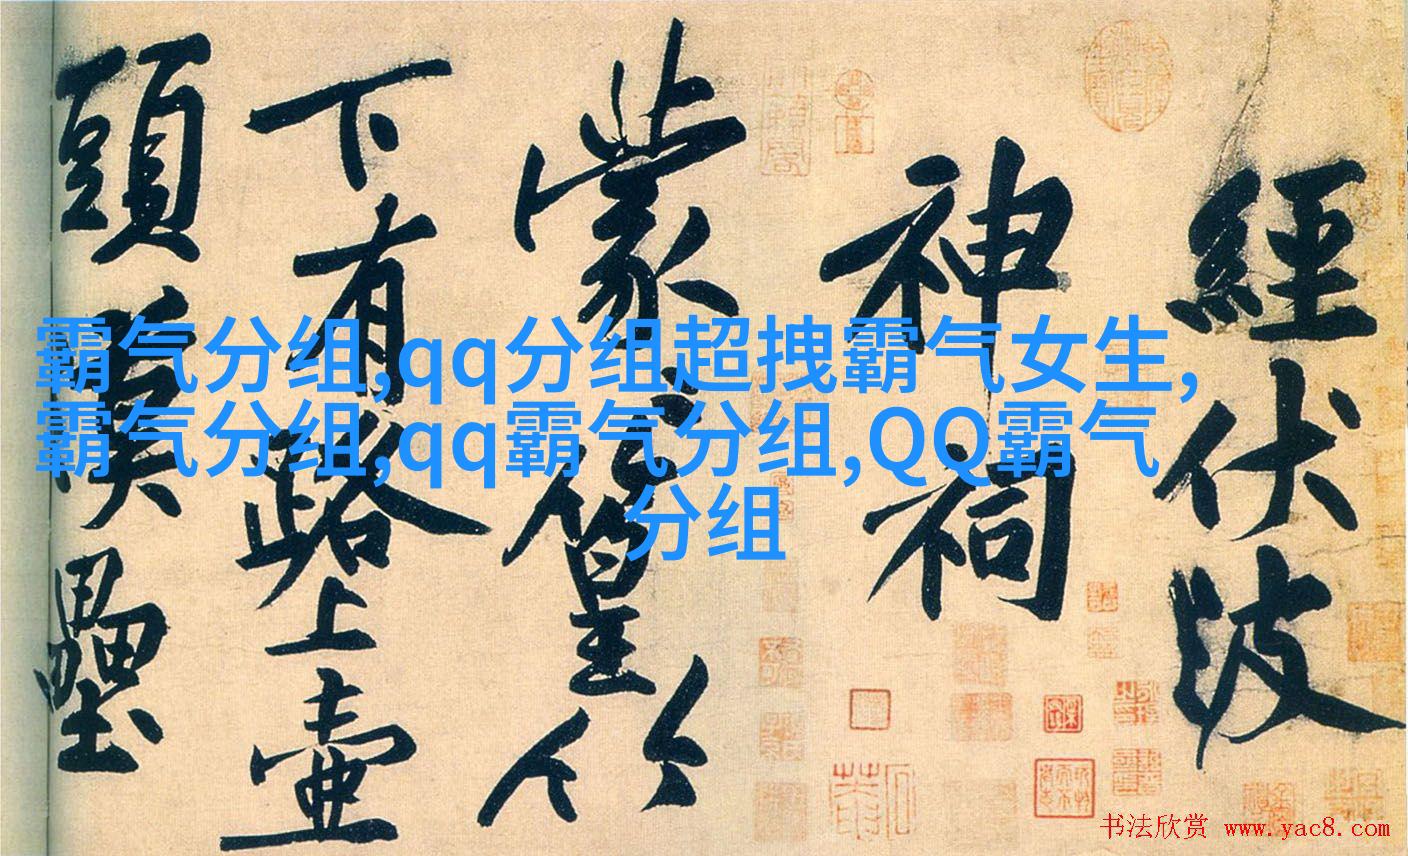 經伏波
神祠
蒙〻篁竹
下有路上壺
頭漢壘
霸气分组,qq分组超拽霸气女生,
霸气分组,qq霸气分组,QQ霸气
分组
书法欣赏 www.yac8.com